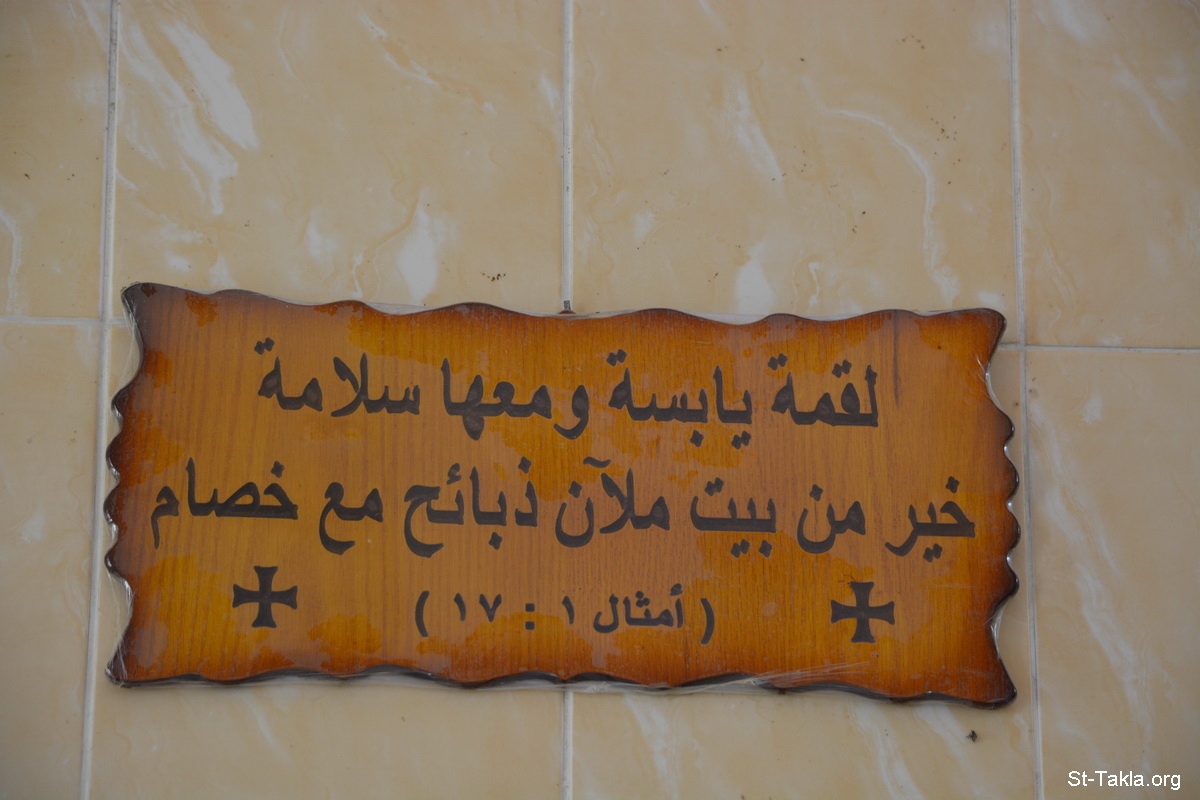 لقمة يابسة ومعها سلامة
خير من بيت ملآن ذبائح مع خصام
( أمثال ١ : ١٧ )
St-Takla.org